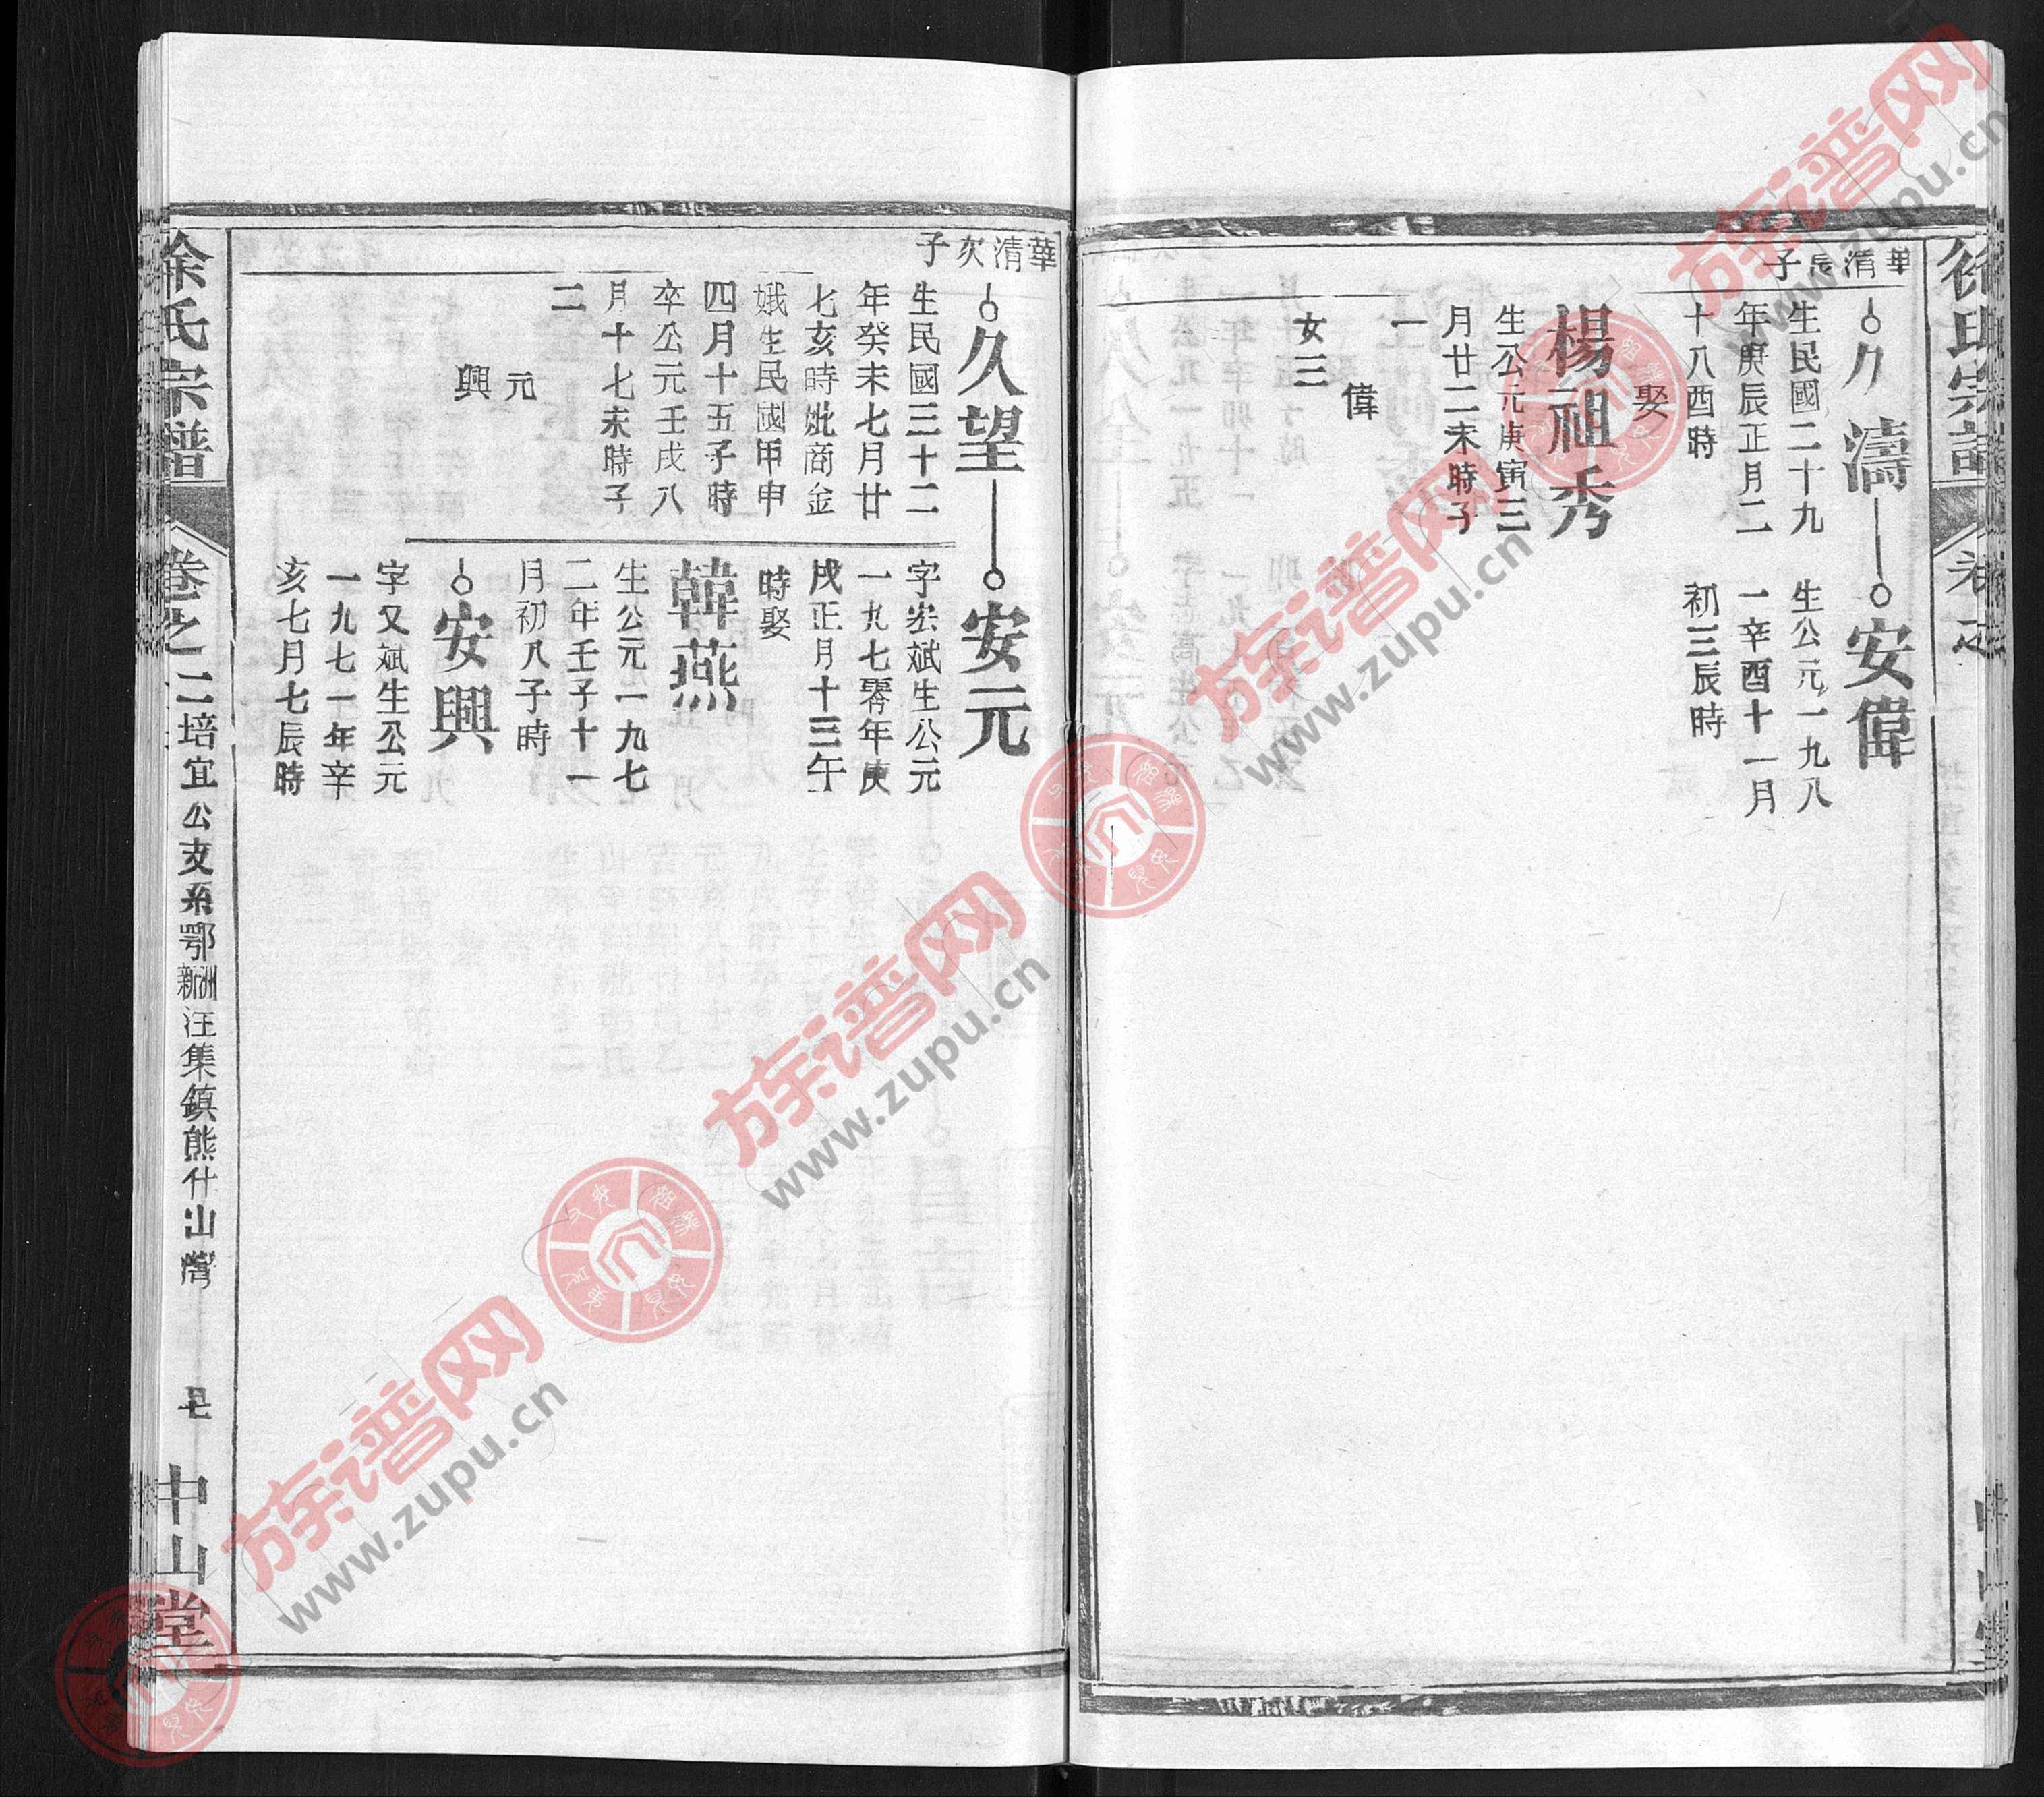 華清長子
久濤
安偉
生民國二十九
年庚辰正月二
十八酉時
娶
楊祖秀
生公元庚寅三
月廿二未時子
一
偉
女三
生公元一九八
一辛酉十一月
初三辰時
華清次子
久望
安元
生民國三十二
年癸未七月廿
七亥時妣商金
娥生民國甲申
四月十五子時
卒公元壬戌八
月十七未時子
二
元
興
字宏斌生公元
一九七零年庚
戌正月十三午
時娶
韓燕
生公元一九七
二年壬子十一
月初八子時
安興
字又斌生公元
一九七一年辛
亥七月七辰時
徐氏宗譜
卷之二
培宜公支系鄂新洲汪集鎮熊什山灣
中山堂
族谱网
www.zupu.cn
族谱网
www.zupu.cn
族谱网
www.zupu.cn
族谱网
www.zupu.cn